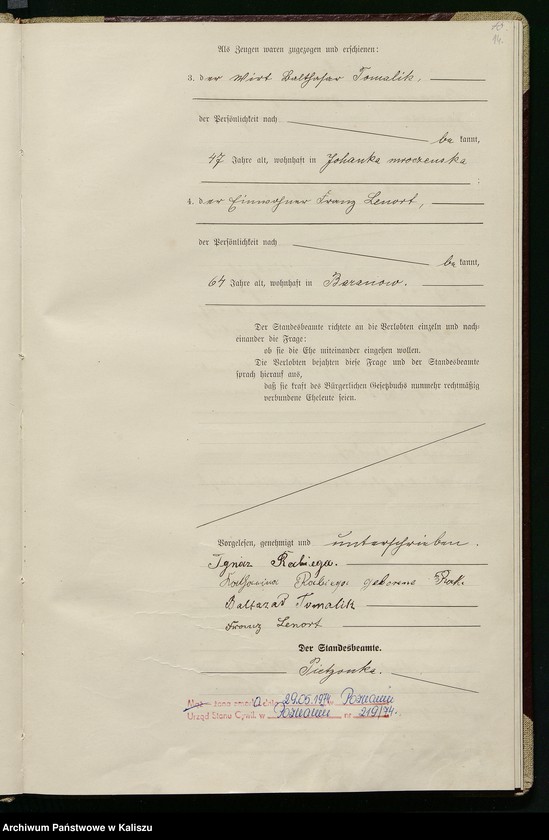 14.
Als Zeugen waren zugezogen und erschienen:
3. der Wirt Balthasar Tomalik,
der Persönlichkeit nach
be kannt,
47 Jahre alt, wohnhaft in Johanka mroczenska
;
4. der Einwohner Franz Lenort,
der Persönlichkeit nach
be kannt,
64 Jahre alt, wohnhaft in Baranow.
Der Standesbeamte richtete an die Verlobten einzeln und nach-
einander die Frage:
ob sie die Ehe miteinander eingehen wollen.
Die Verlobten bejahten diese Frage und der Standesbeamte
sprach hierauf aus,
daß sie kraft des Bürgerlichen Gesetzbuchs nunmehr rechtmäßig
verbundene Eheleute seien.
Vorgelesen, genehmigt und unterschrieben.
Ignaz Rabiega.
Rabiega geborene
Baltazar Tomalik
Franz Lenort
Der Standesbeamte.
Pietzonka.
żona zmarła dnia 29.05.1974 w Poznaniu
Urząd Stanu Cywil. w Poznaniu nr 219/74.
Archiwum Państwowe w Kaliszu